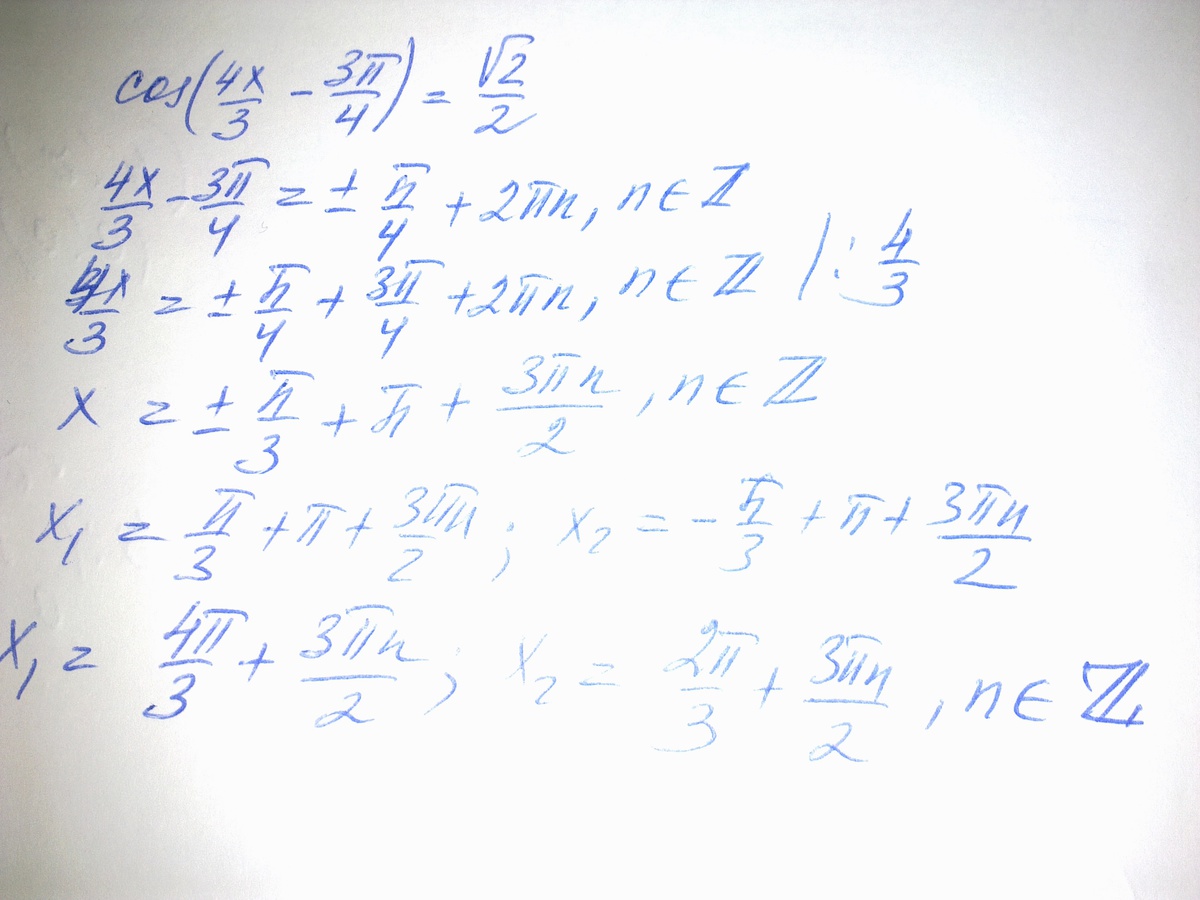 cos(4x/3 - 3π/4) = √2/2
4x/3 - 3π/4 = ± π/4 + 2πn, n ∈ ℤ
4x/3 = ± π/4 + 3π/4 + 2πn, n ∈ ℤ | : 4/3
x = ± π/3 + π + 3πn/2, n ∈ ℤ
x₁ = π/3 + π + 3πn/2; x₂ = - π/3 + π + 3πn/2
x₁ = 4π/3 + 3πn/2; x₂ = 2π/3 + 3πn/2, n ∈ ℤ